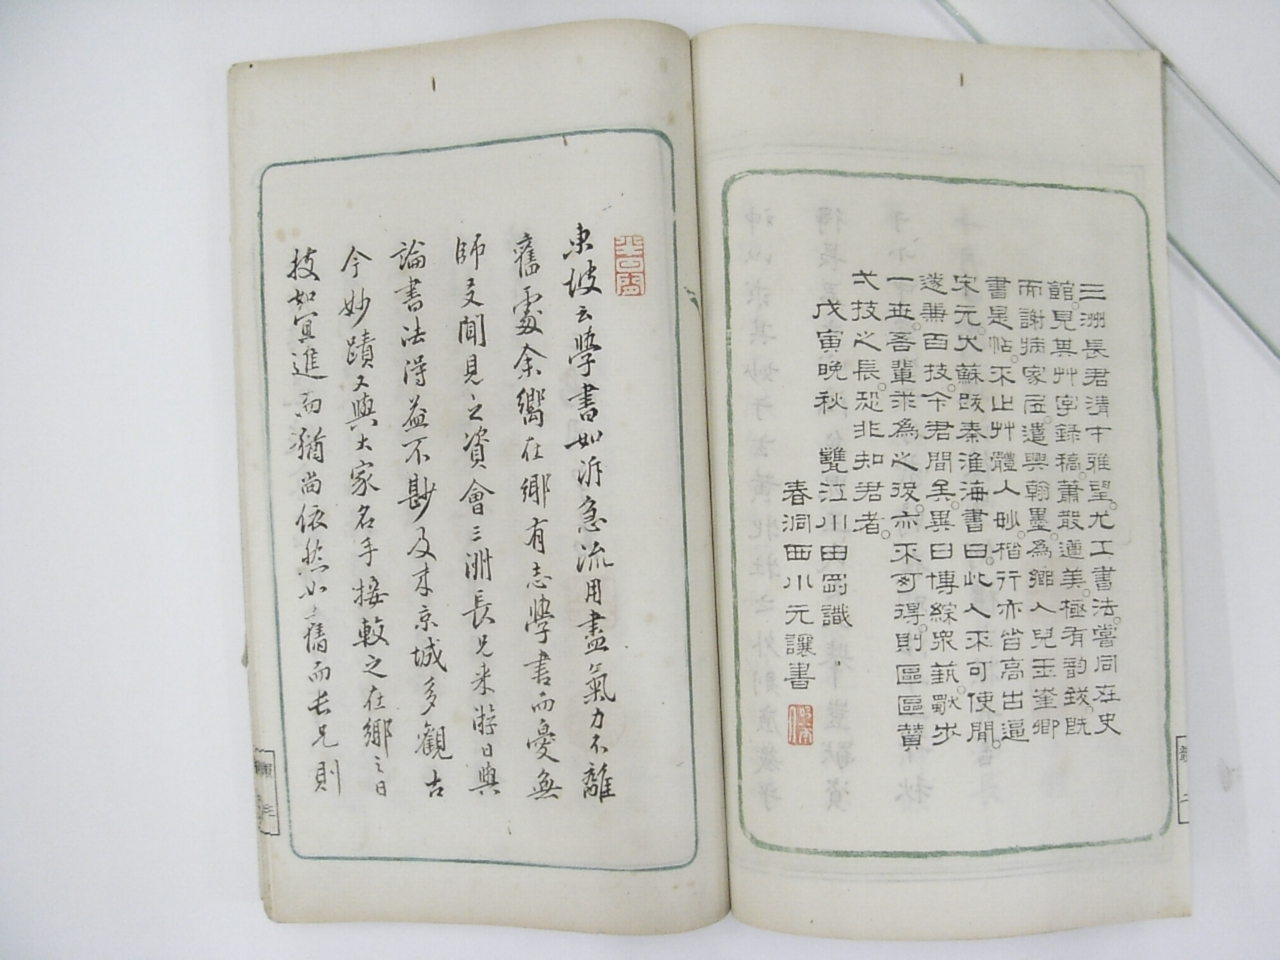 三洲長君清才雅望。尤工書法。嘗同在史
館。見其艸字錄稿。蕭散遒美。極有韵致。既
而謝病家居。遣興翰墨。為鄉人兒玉奎卿
書是帖。不止艸體入妙。楷行亦皆高出逼
宋元。大蘇跋秦淮海書曰。此人不可使閒。
遂兼百技。今君間矣。異日博綜眾藝。歇步
一世。吾輩求為之役。亦不可得。則區區贊
弌技之長。恐非知君者。
戊寅晚秋 甕江川田剛識
春洞西川元讓書
東坡云學書如泝急流用盡氣力不離
舊處余嚮在鄉有志學書而憂無
師友聞見之資會三洲長兄来游日與
論書法得益不尠及来京城多觀古
今妙蹟又與大家名手接較之在鄉之日
技如宜進而猶尚依然如舊而長兄則